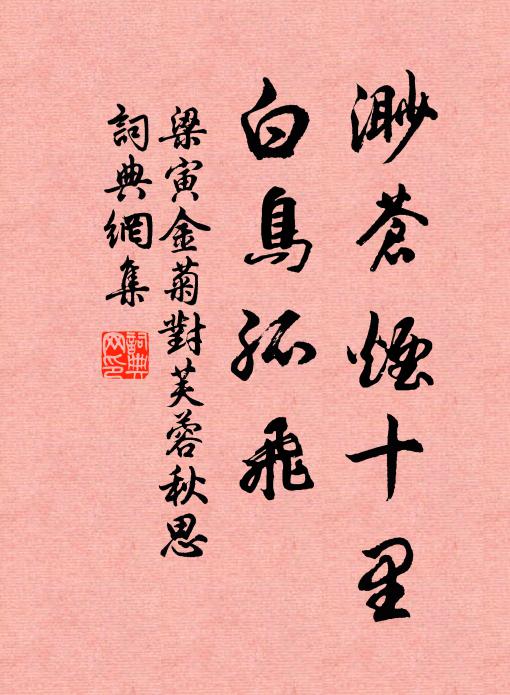 渺蒼煙十里
白鳥孤飛
梁寅金菊對芙蓉秋思
詞典網集
詞典
网印